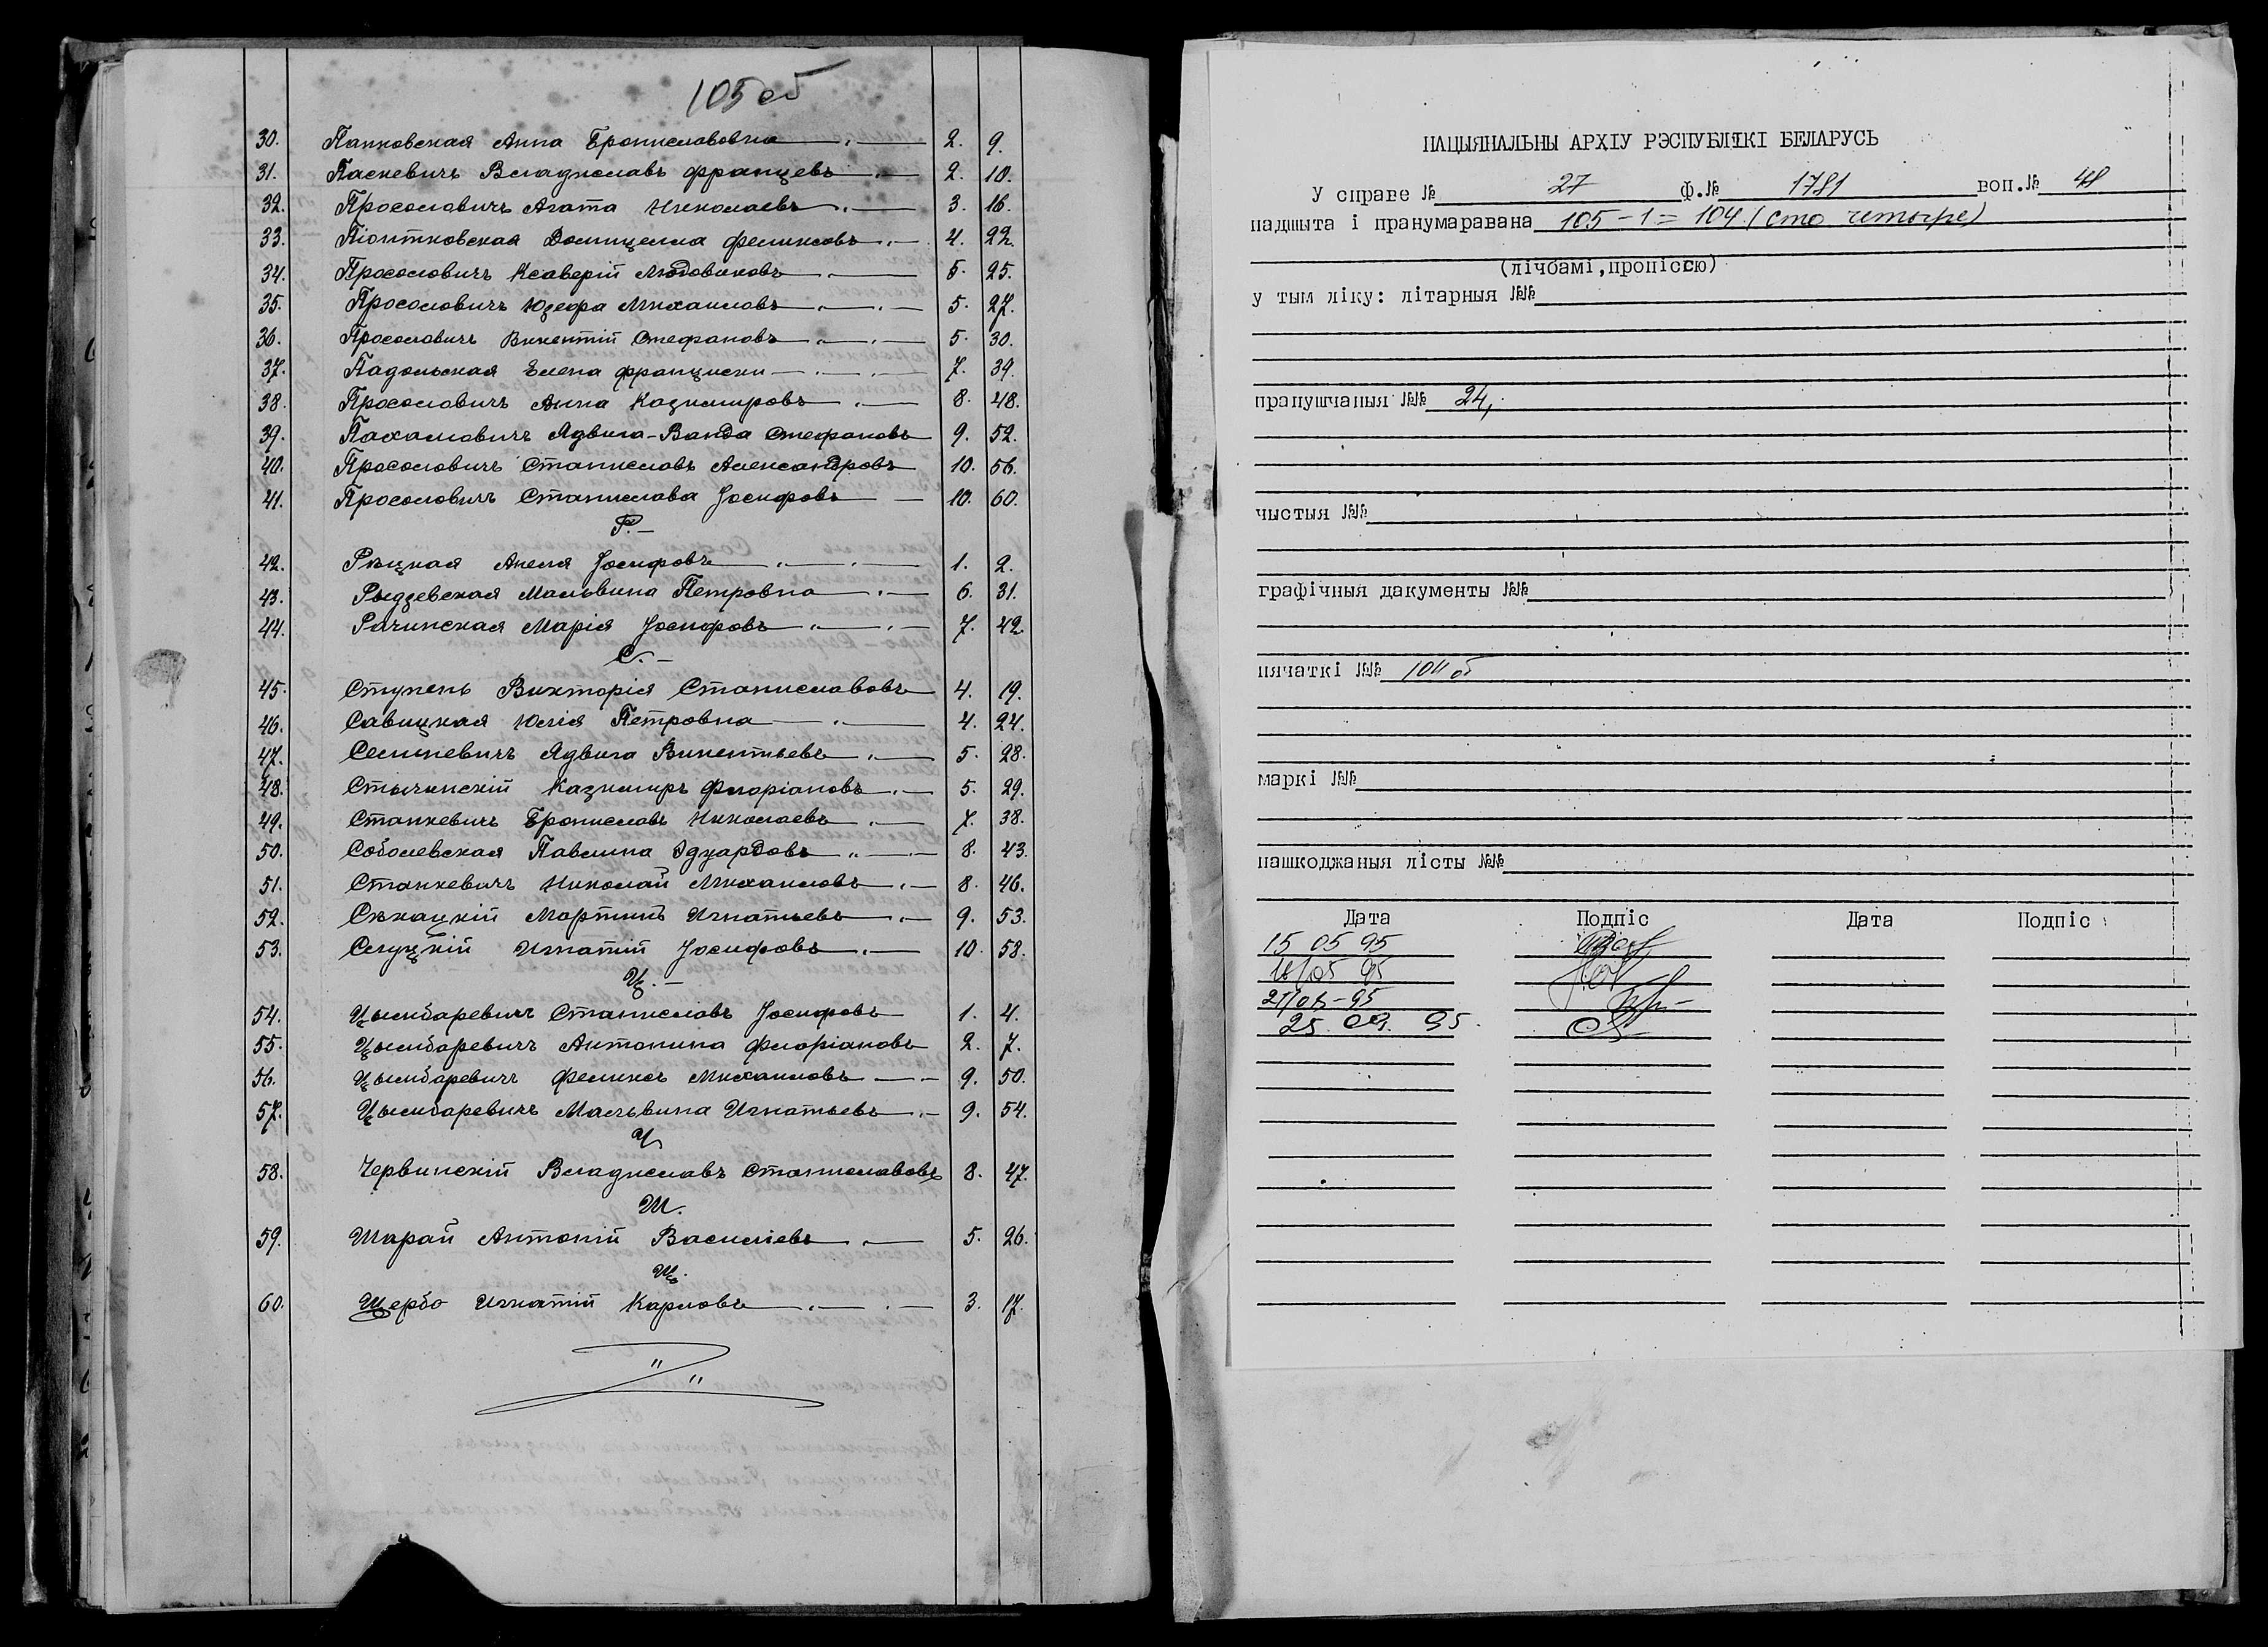 105 об
30. Панковская Анна Брониславовна 2. 9.
31. Паскевичъ Владиславъ Францевъ 2. 10.
32. Прословичъ Агата Николаевъ 3. 16.
33. Піонтковская Домицелла Феликсовъ 4. 22.
34. Просоловичъ Ксаверій Людовиковъ 5. 25.
35. Просоловичъ Юзефа Михаиловъ 5. 27.
36. Просоловичъ Викентій Стефановъ 5. 30.
37. Падольская Елена Францишки 7. 39.
38. Просоловичъ Анна Казимировъ 8. 48.
39. Пахаловичъ Ядвига-Ванда Стефановъ 9. 52.
40. Просоловичъ Станиславъ Александровъ 10. 56.
41. Просоловичъ Станислава Іосифовъ 10. 60.
Р.
42. Рѣцкая Анеля Іосифовъ 1. 2.
43. Рыдзевская Мальвина Петровна 6. 31.
44. Рачинская Марія Іосифовъ 7. 42.
С.
45. Ступень Викторія Станиславовъ 4. 19.
46. Савицкая Юлія Петровна 4. 24.
47. Сенкевичъ Ядвига Викентьевъ 5. 28.
48. Стычинскій Казимиръ Флоріановъ 5. 29.
49. Станкевичъ Брониславъ Николаевъ 7. 38.
50. Соболевская Павлина Эдуардовъ 8. 43.
51. Станкевичъ Николай Михаиловъ 8. 46.
52. Скнацкій Мартинъ Игнатьевъ 9. 53.
53. Слуцкій Игнатій Іосифовъ 10. 58.
Ц.
54. Цымбаревичъ Станиславъ Іосифовъ 1. 4.
55. Цымбаревичъ Антонина Флоріановъ 2. 7.
56. Цымбаревичъ Феликсъ Михаиловъ 9. 50.
57. Цымбаревичъ Мальвина Игнатьевъ 9. 54.
Ч
58. Червинскій Владиславъ Станиславовъ 8. 47.
Ш.
59. Шарай Антоній Василіевъ 5. 26.
Щ.
60. Щербо Игнатій Карловъ 3. 17.
НАЦЫЯНАЛЬНЫ АРХІУ РЭСПУБЛІКІ БЕЛАРУСЬ
У справе № 27 ф.№ 1781 воп.№ 48
падшыта і пранумаравана 105-1=104 (сто четыре)
(лічбамі,пропіссю)
у тым ліку: літарныя №№
прапушчаныя №№ 24,
чыстыя №№
графічныя дакументы №№
пячаткі №№ 104 об
маркі №№
пашкоджаныя лісты №№
Дата Подпіс Дата Подпіс
15 05 95
25. 09. 95.